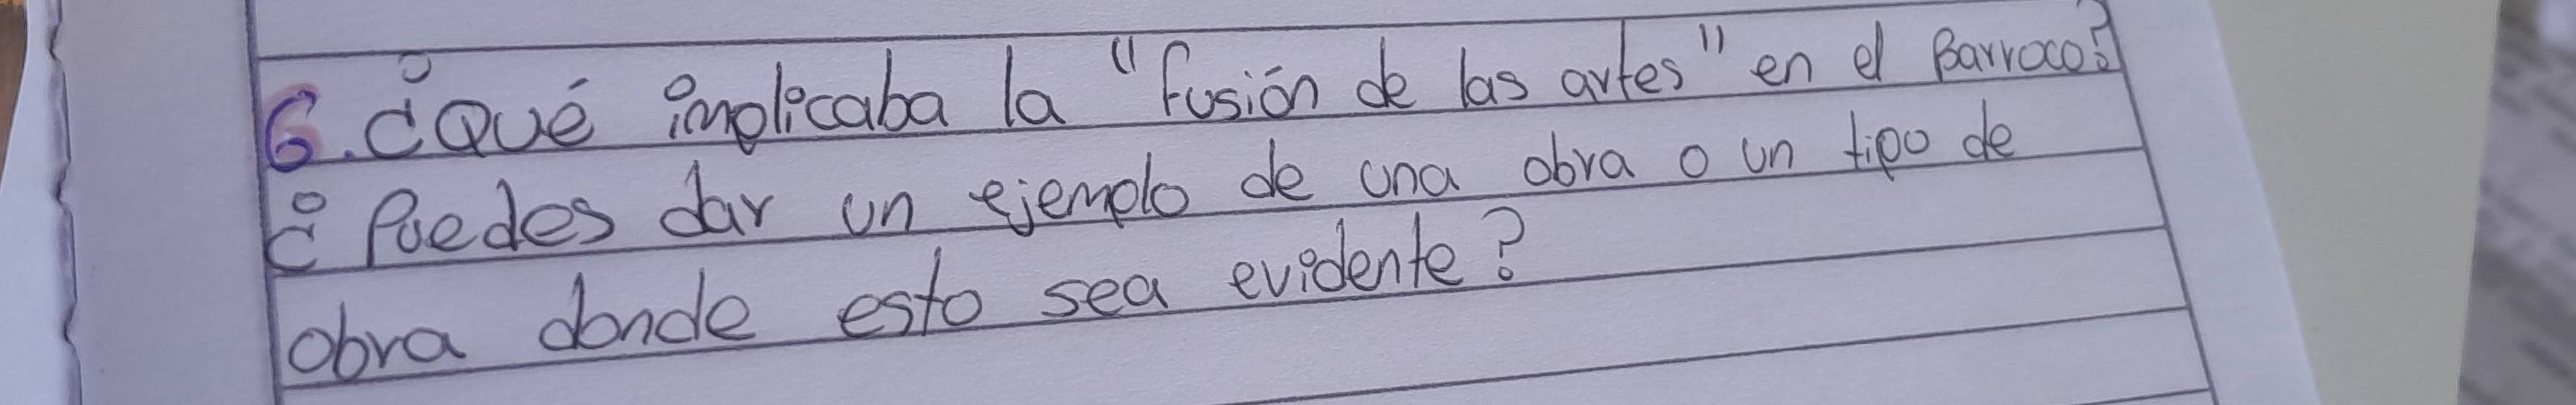 6. ¿Qué implicaba la "fusión de las artes" en el Barroco?
¿Puedes dar un ejemplo de una obra o un tipo de
obra donde esto sea evidente?